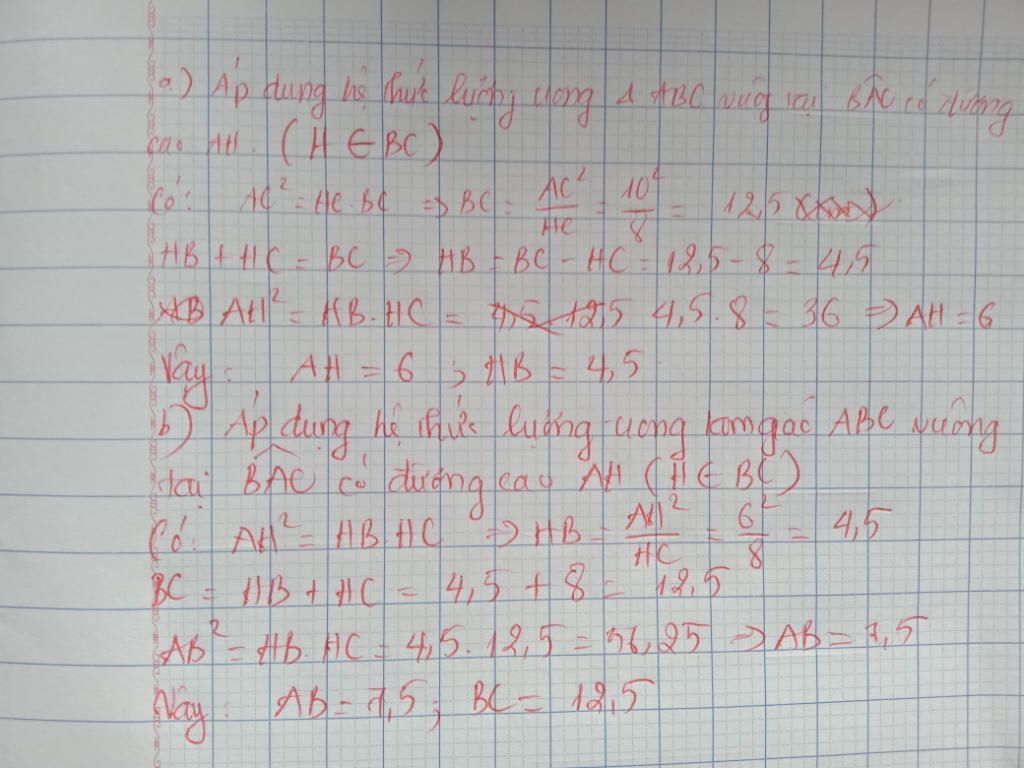 a) Áp dụng hệ thức lượng trong Δ ABC vuông tại BÂC có đường
cao AH. (H ∈ BC)
Có: AC² = HC.BC => BC = AC²/HC = 10²/8 = 12,5
HB + HC = BC => HB = BC - HC = 12,5 - 8 = 4,5
AH² = HB.HC = 4,5.8 = 36 => AH = 6
Vậy: AH = 6 ; HB = 4,5
b) Áp dụng hệ thức lượng trong tam giác ABC vuông
tại BÂC có đường cao AH (H ∈ BC)
Có: AH² = HB.HC => HB = AH²/HC = 6²/8 = 4,5
BC = HB + HC = 4,5 + 8 = 12,5
AB² = HB.HC = 4,5.12,5 = 56,25 => AB = 7,5
Vậy: AB = 7,5; BC = 12,5